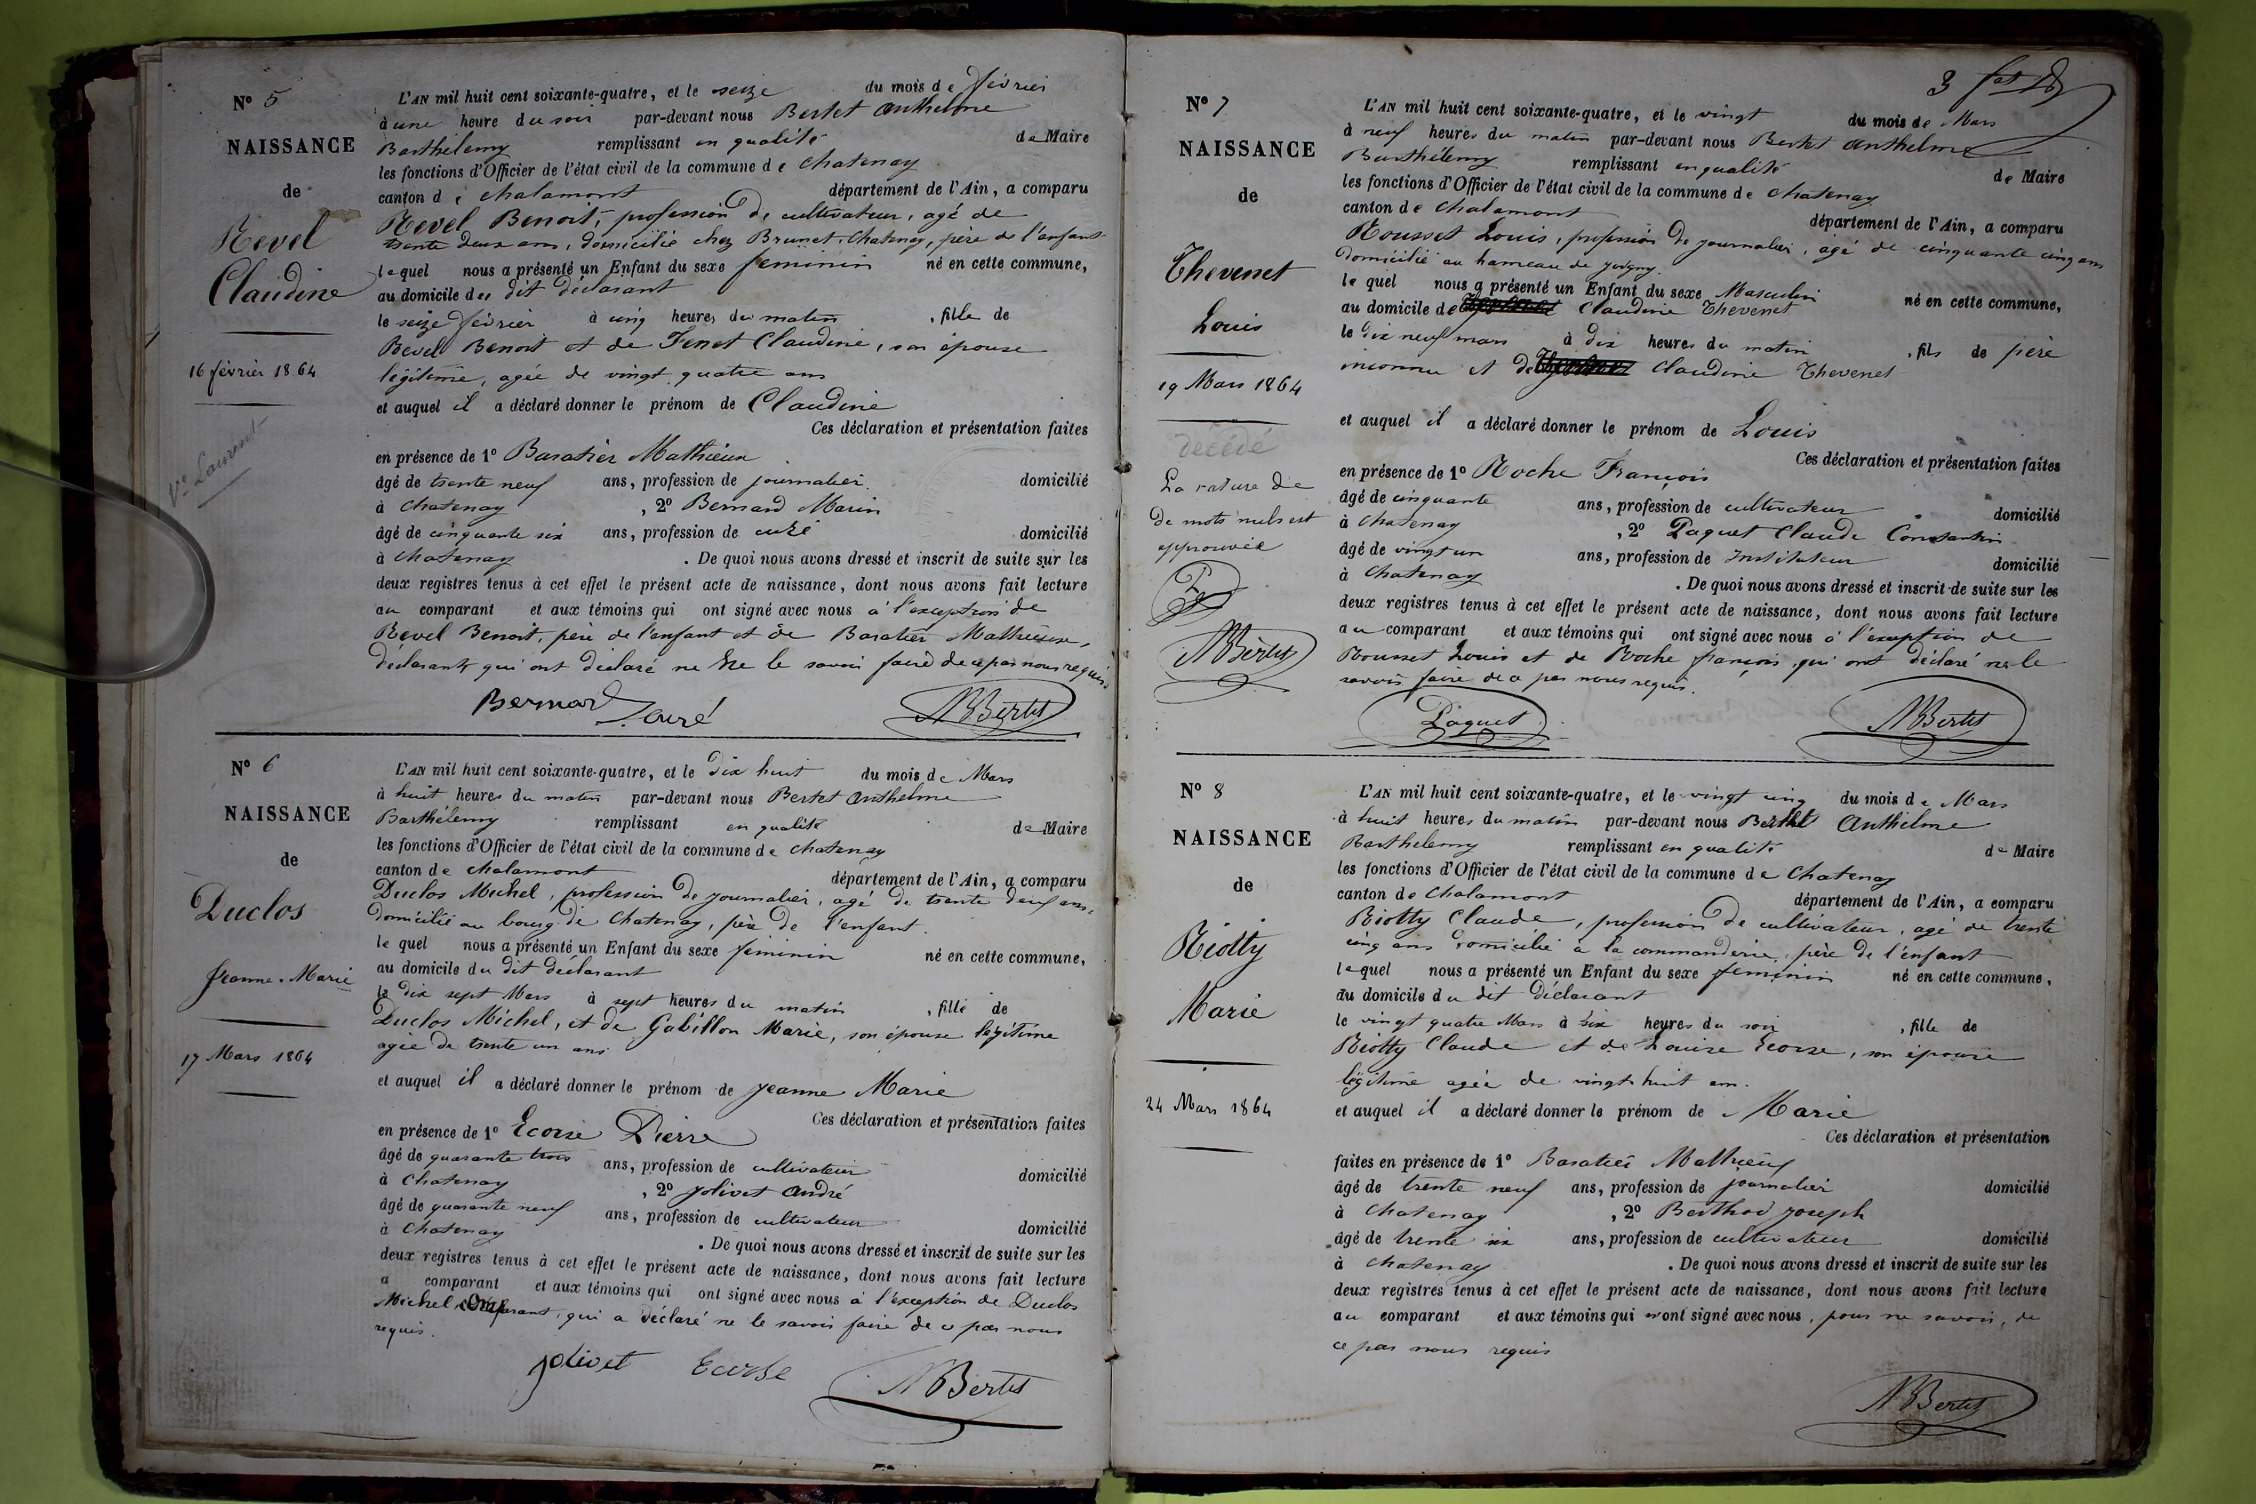 N° 5
NAISSANCE
de
Revel
Claudine
16 février 1864
Vve Laurent
L'AN mil huit cent soixante-quatre, et le seize du mois de février
à une heure du soir par-devant nous Bertet Anthelme
Barthélemy remplissant en qualité de Maire
les fonctions d'Officier de l'état civil de la commune de Chatenay
canton de Chalamont département de l'Ain, a comparu
Revel Benoit, profession de cultivateur, agé de
trente deux ans, domicilié chez Brunet, Chatenay, père de l'enfant
lequel nous a présenté un Enfant du sexe féminin né en cette commune,
au domicile du dit déclarant
le seize février à cinq heures du matin, fille de
Revel Benoit et de Fenet Claudine, son épouse
légitime, agée de vingt quatre ans
et auquel il a déclaré donner le prénom de Claudine
Ces déclaration et présentation faites
en présence de 1° Baratier Mathieu
âgé de trente neuf ans, profession de journalier domicilié
à Chatenay, 2° Bernard Marin
âgé de cinquante six ans, profession de curé domicilié
à Chatenay. De quoi nous avons dressé et inscrit de suite sur les
deux registres tenus à cet effet le présent acte de naissance, dont nous avons fait lecture
au comparant et aux témoins qui ont signé avec nous à l'exception de
Revel Benoit, père de l'enfant et de Baratier Mathieu,
déclarants qui ont déclaré ne le savoir faire de ce par nous requis.
Bernard curé ABBertet
N° 6
NAISSANCE
de
Duclos
Jeanne-Marie
17 Mars 1864
L'AN mil huit cent soixante-quatre, et le dix huit du mois de Mars
à huit heures du matin par-devant nous Bertet Anthelme
Barthélemy remplissant en qualité de Maire
les fonctions d'Officier de l'état civil de la commune de Chatenay
canton de Chalamont département de l'Ain, a comparu
Duclos Michel, profession de journalier, agé de trente deux ans,
domicilié au bourg de Chatenay, père de l'enfant.
lequel nous a présenté un Enfant du sexe féminin né en cette commune,
au domicile du dit déclarant
le dix sept Mars à sept heures du matin, fille de
Duclos Michel, et de Gabillon Marie, son épouse légitime
agée de trente un ans
et auquel il a déclaré donner le prénom de Jeanne Marie
Ces déclaration et présentation faites
en présence de 1° Ecorse Pierre
âgé de quarante trois ans, profession de cultivateur domicilié
à Chatenay, 2° Jolivet André
âgé de quarante neuf ans, profession de cultivateur domicilié
à Chatenay. De quoi nous avons dressé et inscrit de suite sur les
deux registres tenus à cet effet le présent acte de naissance, dont nous avons fait lecture
a comparant et aux témoins qui ont signé avec nous à l'exception de Duclos
Michel comparant, qui a déclaré ne le savoir faire de ce par nous
requis.
Jolivet Ecorse ABBertet
3
N° 7
NAISSANCE
de
Thevenet
Louis
19 Mars 1864
décédé
La rature de
de mots nuls est
approuvée
ABBertet
L'AN mil huit cent soixante-quatre, et le vingt du mois de Mars
à neuf heures du matin par-devant nous Bertet Anthelme
Barthélemy remplissant en qualité de Maire
les fonctions d'Officier de l'état civil de la commune de Chatenay
canton de Chalamont département de l'Ain, a comparu
Rousset Louis, profession de journalier, agé de cinquante cinq ans
domicilié au hameau de
lequel nous a présenté un Enfant du sexe Masculin né en cette commune,
au domicile de Claudine Thevenet
le dix neuf mars à dix heures du matin, fils de père
inconnu et de Claudine Thevenet
et auquel il a déclaré donner le prénom de Louis
Ces déclaration et présentation faites
en présence de 1° Roche François
âgé de cinquante ans, profession de cultivateur domicilié
à Chatenay, 2° Paquet Claude Constantin
âgé de vingt un ans, profession de Instituteur domicilié
à Chatenay. De quoi nous avons dressé et inscrit de suite sur les
deux registres tenus à cet effet le présent acte de naissance, dont nous avons fait lecture
au comparant et aux témoins qui ont signé avec nous à l'exception de
Rousset Louis et de Roche françois, qui ont déclaré ne le
savoir faire de ce par nous requis.
Paquet ABBertet
N° 8
NAISSANCE
de
Riotty
Marie
24 Mars 1864
L'AN mil huit cent soixante-quatre, et le vingt cinq du mois de Mars
à huit heures du matin par-devant nous Bertet Anthelme
Barthélemy remplissant en qualité de Maire
les fonctions d'Officier de l'état civil de la commune de Chatenay
canton de Chalamont département de l'Ain, a comparu
Riotty Claude, profession de cultivateur, agé de trente
cinq ans domicilié à la commanderie, père de l'enfant
lequel nous a présenté un Enfant du sexe féminin né en cette commune,
au domicile du dit Déclarant
le vingt quatre Mars à six heures du soir, fille de
Riotty Claude et de Louise Ecorse, son épouse
légitime agée de vingt huit ans.
et auquel il a déclaré donner le prénom de Marie
Ces déclaration et présentation
faites en présence de 1° Baratier Mathieu
âgé de trente neuf ans, profession de journalier domicilié
à Chatenay, 2° Berthod Joseph
âgé de trente six ans, profession de cultivateur domicilié
à Chatenay. De quoi nous avons dressé et inscrit de suite sur les
deux registres tenus à cet effet le présent acte de naissance, dont nous avons fait lecture
au comparant et aux témoins qui n'ont signé avec nous, pour ne savoir, de
ce par nous requis
ABBertet